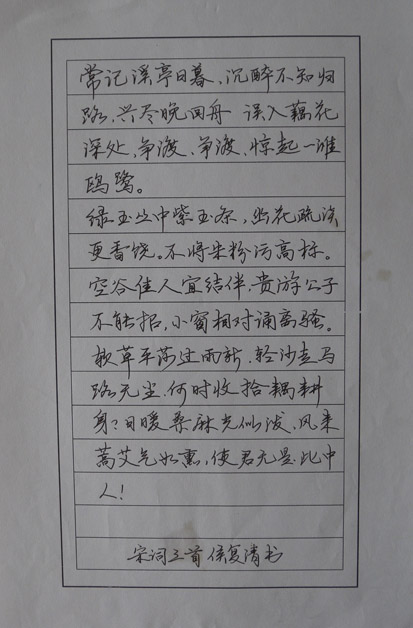 常记溪亭日暮，沉醉不知归
路，兴尽晚回舟 误入藕花
深处，争渡、争渡、惊起一滩
鸥鹭。
绿玉丛中紫玉条，幽花疏淡
更香饶。不将朱粉污高标。
空谷佳人宜结伴，贵游公子
不能招，小窗相对诵离骚。
软草平莎过雨新，轻沙走马
路无尘，何时收拾耦耕
身？日暖桑麻光似泼，风来
蒿艾气如熏，使君元是此中
人！
宋词三首 侯复清书